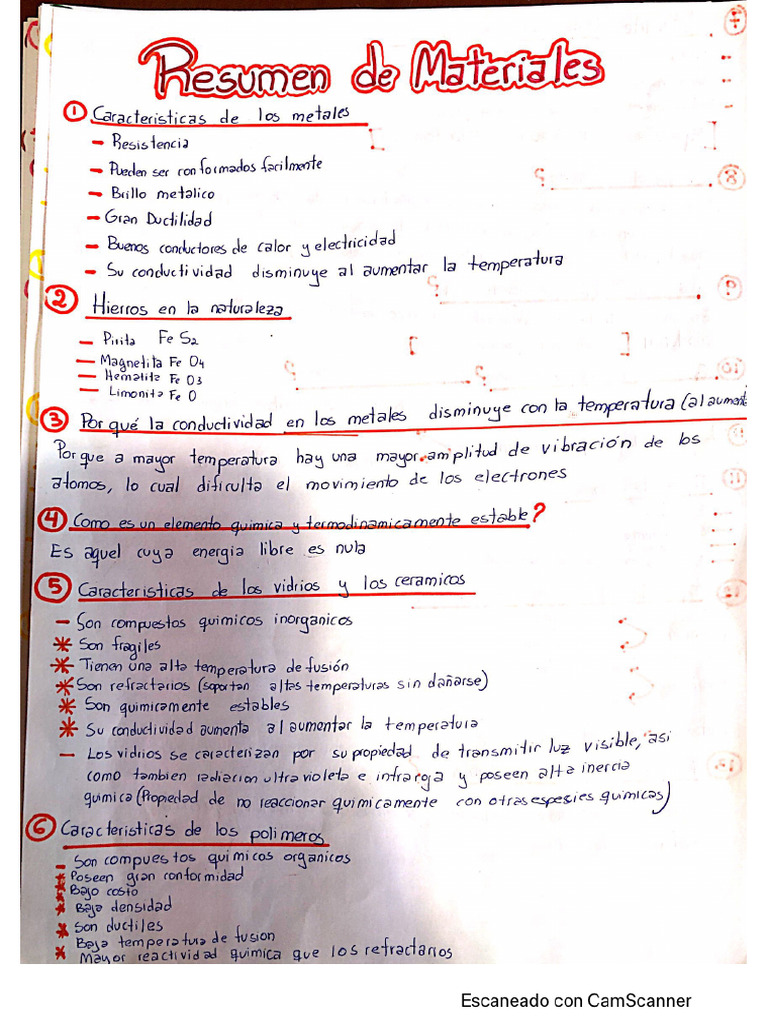 Resumen de Materiales
① Caracteristicas de los metales
- Resistencia
- Pueden ser conformados facilmente
- Brillo metalico
- Gran Ductilidad
- Buenos conductores de calor y electricidad
- Su conductividad disminuye al aumentar la temperatura
② Hierros en la naturaleza
- Pirita Fe S2
- Magnetita Fe O4
- Hematita Fe O3
- Limonita Fe O
③ Por qué la conductividad en los metales disminuye con la temperatura (al aument
Porque a mayor temperatura hay una mayor amplitud de vibración de los
atomos, lo cual dificulta el movimiento de los electrones
④ Como es un elemento quimica y termodinamicamente estable?
Es aquel cuya energia libre es nula
⑤ Caracteristicas de los vidrios y los ceramicos
- Son compuestos quimicos inorganicos
* Son fragiles
* Tienen una alta temperatura de fusión
* Son refractarios (soportan altas temperaturas sin dañarse)
* Son quimicamente estables
* Su conductividad aumenta al aumentar la temperatura
- Los vidrios se caracterizan por su propiedad de transmitir luz visible, asi
como tambien radiacion ultravioleta e infraroja y poseen alta inercia
quimica (Propiedad de no reaccionar quimicamente con otras especies quimicas)
⑥ Caracteristicas de los polimeros
- Son compuestos quimicos organicos
* Poseen gran conformidad
* Bajo costo
* Baja densidad
* Son ductiles
* Baja temperatura de fusion
* Mayor reactividad quimica que los refractarios
Escaneado con CamScanner